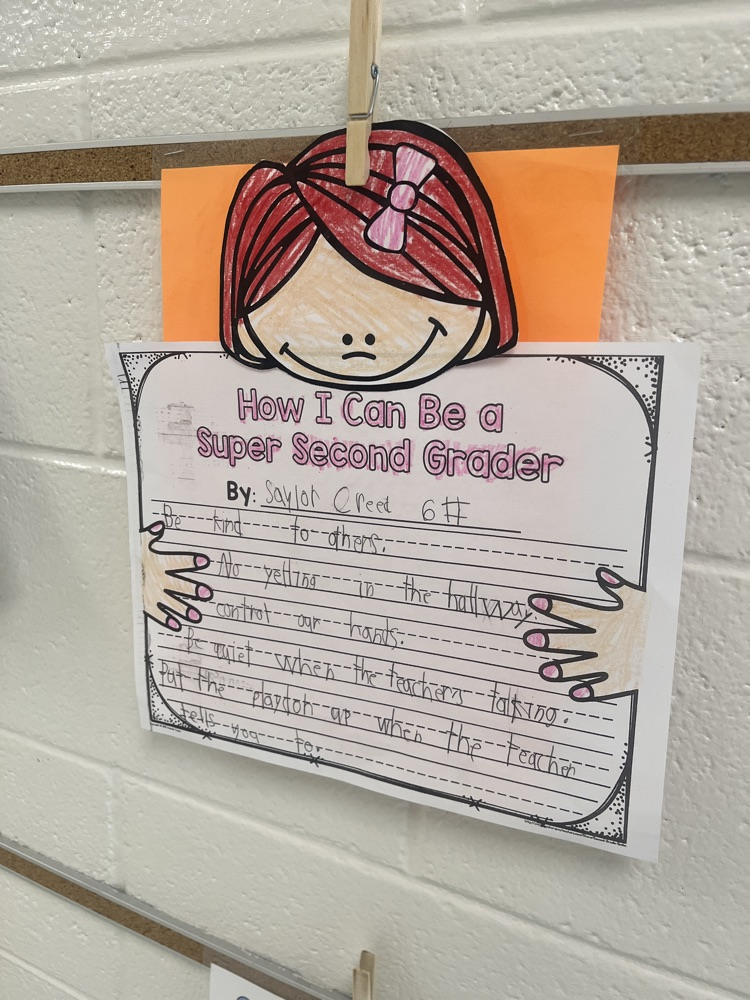 How I Can Be a
Super Second Grader
By: Saylor Creed 6#
Be kind to others.
No yelling in the hallway.
control our hands.
Be quiet when the teacher's talking.
Put the playdoh up when the teacher
tells you to.